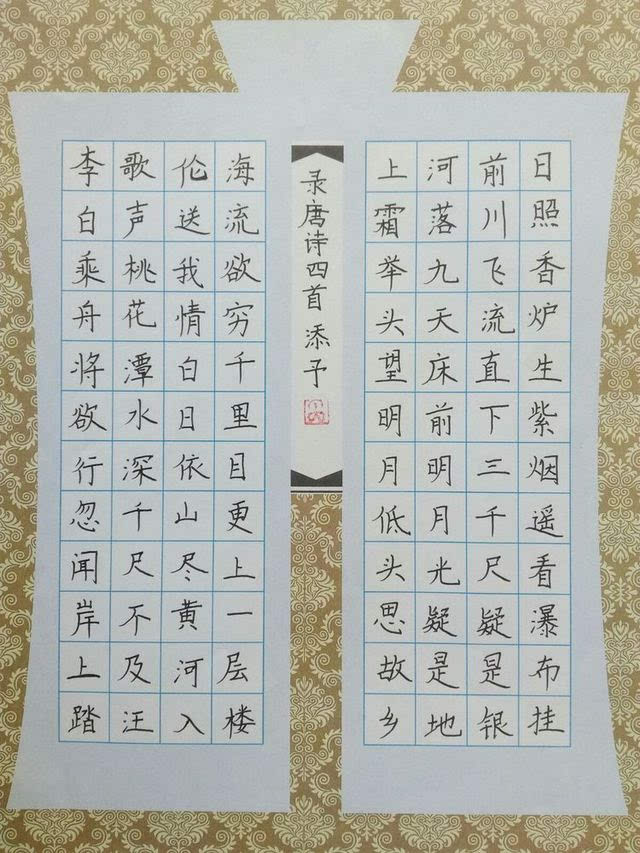 日照香炉生紫烟遥看瀑布挂
前川飞流直下三千尺疑是银
河落九天床前明月光疑是地
上霜举头望明月低头思故乡
李白乘舟将欲行忽闻岸上踏
歌声桃花潭水深千尺不及汪
伦送我情白日依山尽黄河入
海流欲穷千里目更上一层楼
录唐诗四首 添予